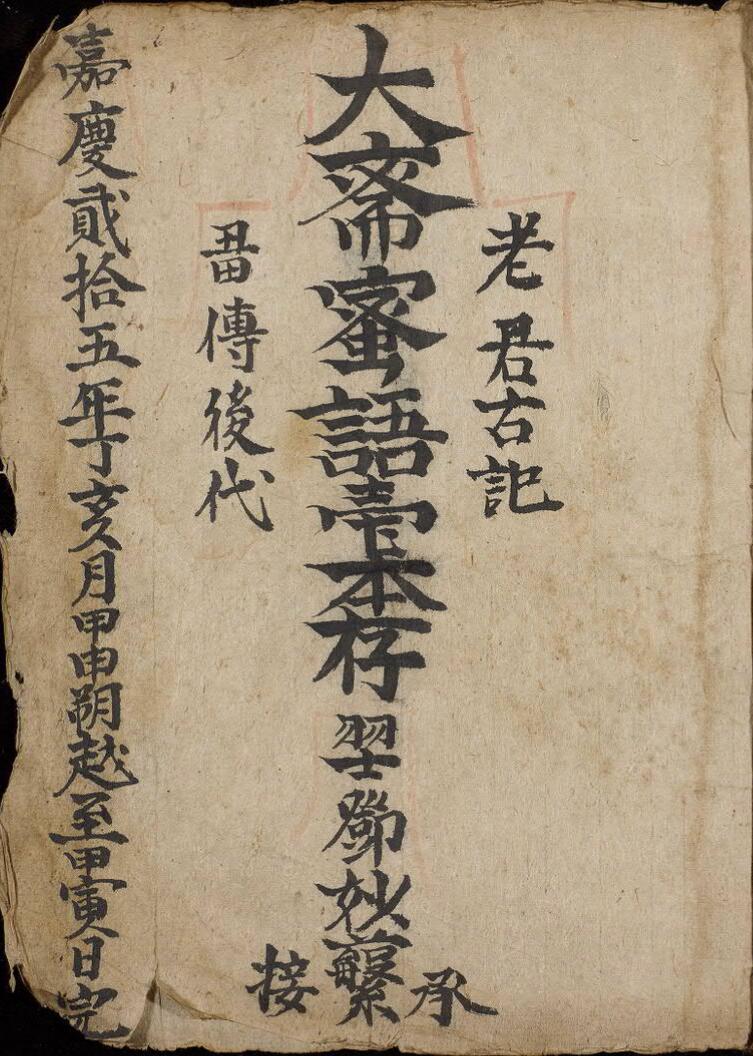 老君古記
大斎蜜語壹本存 鄧妙
承接
畱傳後代
嘉慶貳拾五年丁亥月甲申朔越至甲寅日完